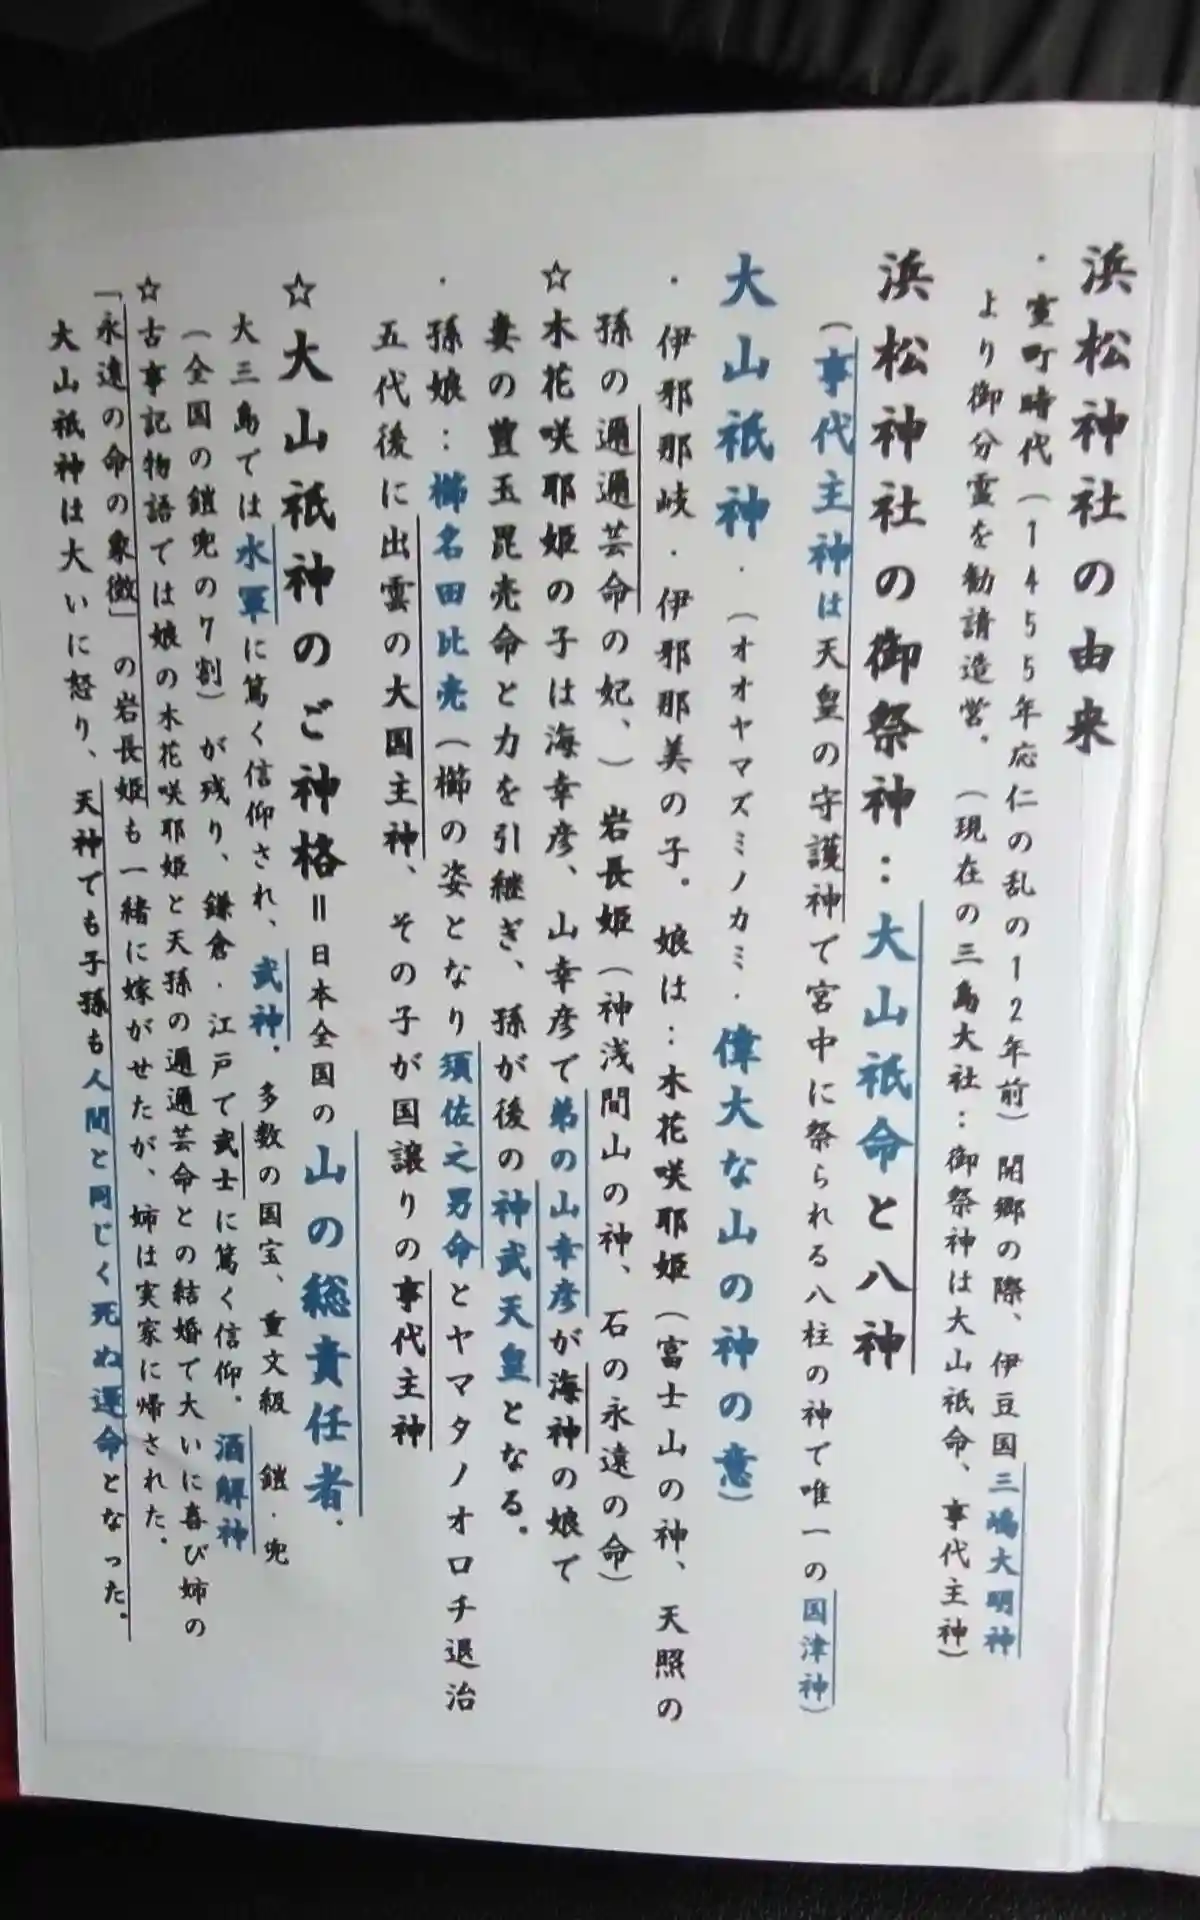 浜松神社の由来
・室町時代（1455年応仁の乱の12年前）開郷の際、伊豆国三嶋大明神
より御分霊を勧請造営。（現在の三島大社：御祭神は大山祇命、事代主神）
浜松神社の御祭神：大山祇命と八神
（事代主神は天皇の守護神で宮中に祭られる八柱の神で唯一の国津神）
大山祇神・（オオヤマズミノカミ・偉大な山の神の意）
・伊邪那岐・伊邪那美の子。娘は：木花咲耶姫（富士山の神、天照の
孫の邇邇芸命の妃、）岩長姫（神浅間山の神、石の永遠の命）
☆木花咲耶姫の子は海幸彦、山幸彦で弟の山幸彦が海神の娘で
妻の豊玉毘売命と力を引継ぎ、孫が後の神武天皇となる。
・孫娘：櫛名田比売（櫛の姿となり須佐之男命とヤマタノオロチ退治
五代後に出雲の大国主神、その子が国譲りの事代主神
☆大山祇神のご神格＝日本全国の山の総責任者。
大三島では水軍に篤く信仰され、武神。多数の国宝、重文級 鎧・兜
（全国の鎧兜の7割）が残り、鎌倉・江戸で武士に篤く信仰。酒解神
☆古事記物語では娘の木花咲耶姫と天孫の邇邇芸命との結婚で大いに喜び姉の
「永遠の命の象徴」の岩長姫も一緒に嫁がせたが、姉は実家に帰された。
大山祇神は大いに怒り、天神でも子孫も人間と同じく死ぬ運命となった。